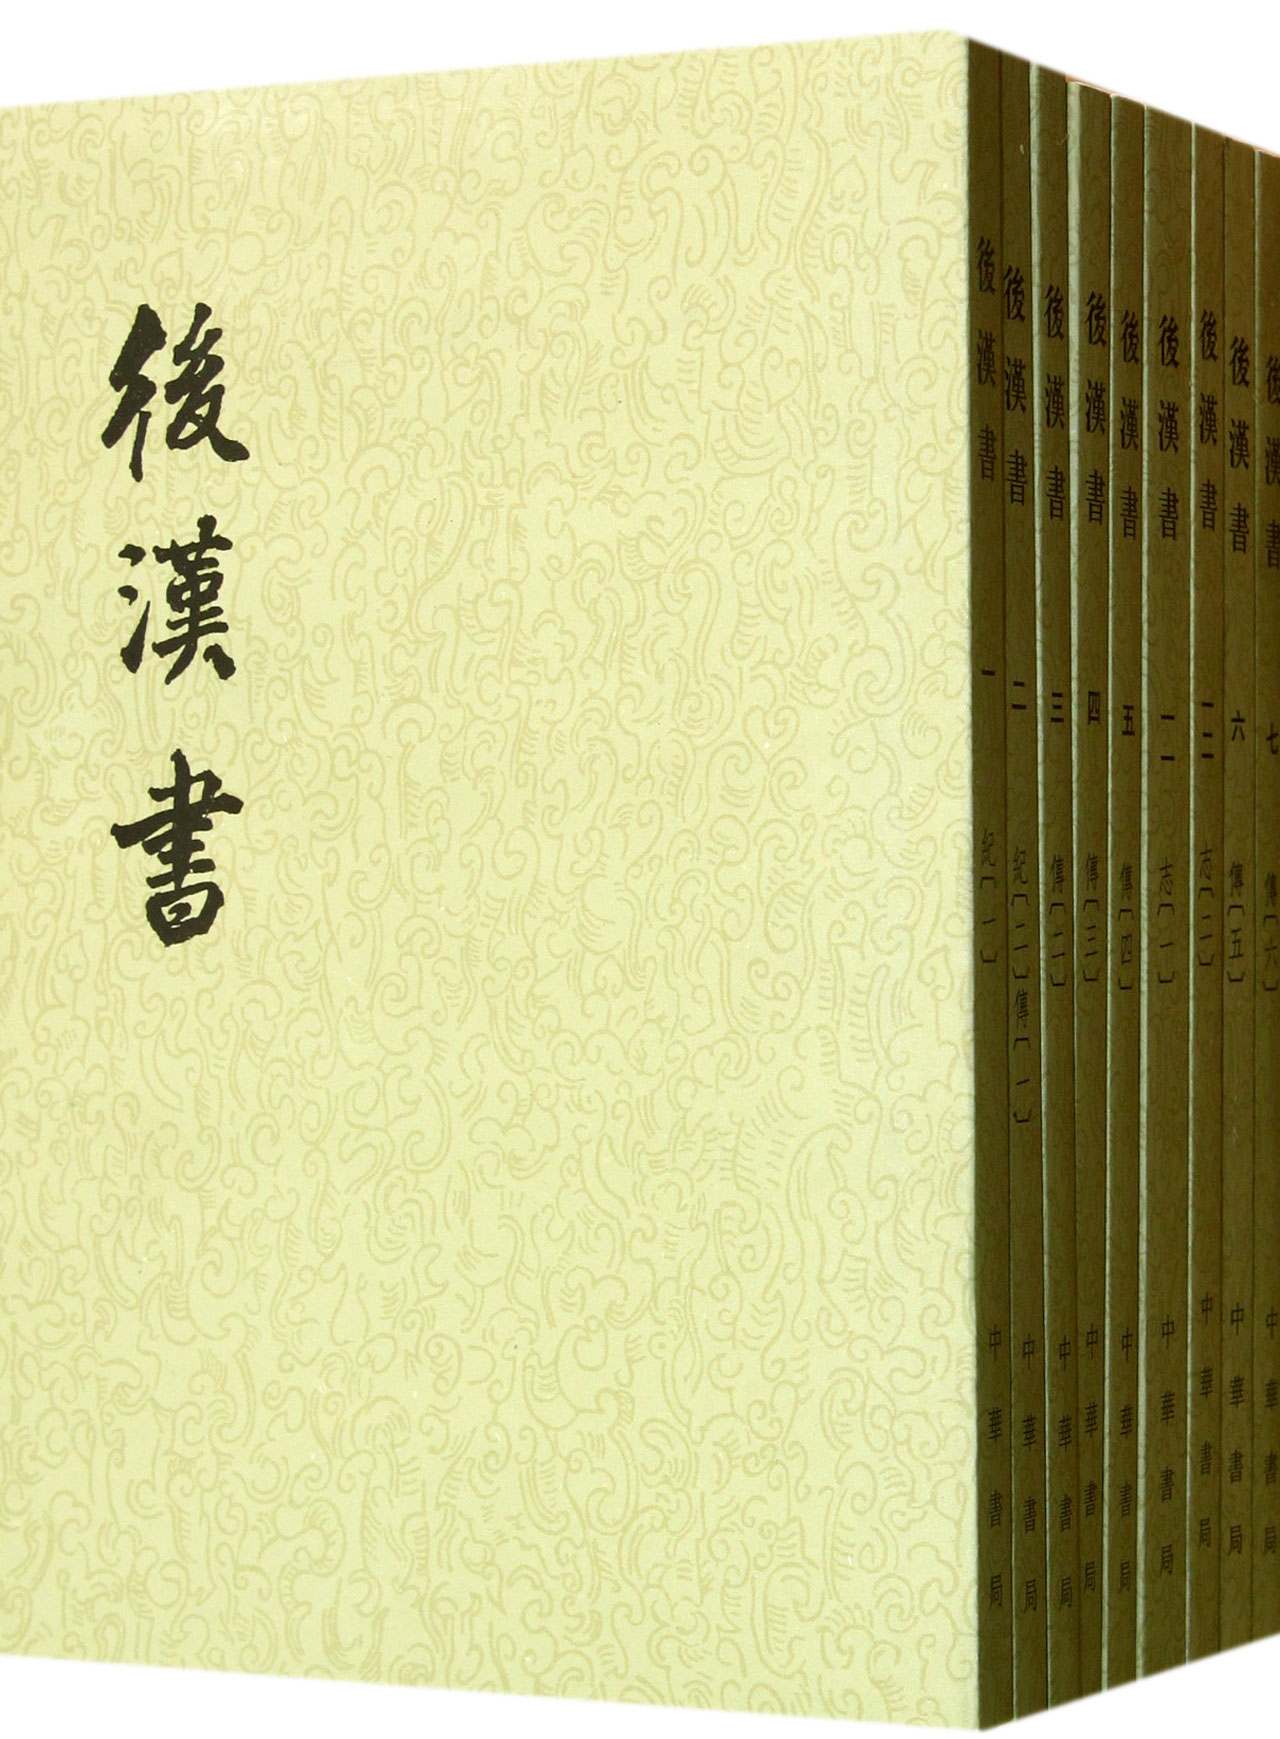 後漢書
後漢書 一 紀〔一〕 中華書局
後漢書 二 紀〔二〕傳〔一〕 中華書局
後漢書 三 傳〔二〕 中華書局
後漢書 四 傳〔三〕 中華書局
後漢書 五 傳〔四〕 中華書局
後漢書 一一 志〔一〕 中華書局
後漢書 一二 志〔二〕 中華書局
後漢書 六 傳〔五〕 中華書局
後漢書 七 傳〔六〕 中華書局